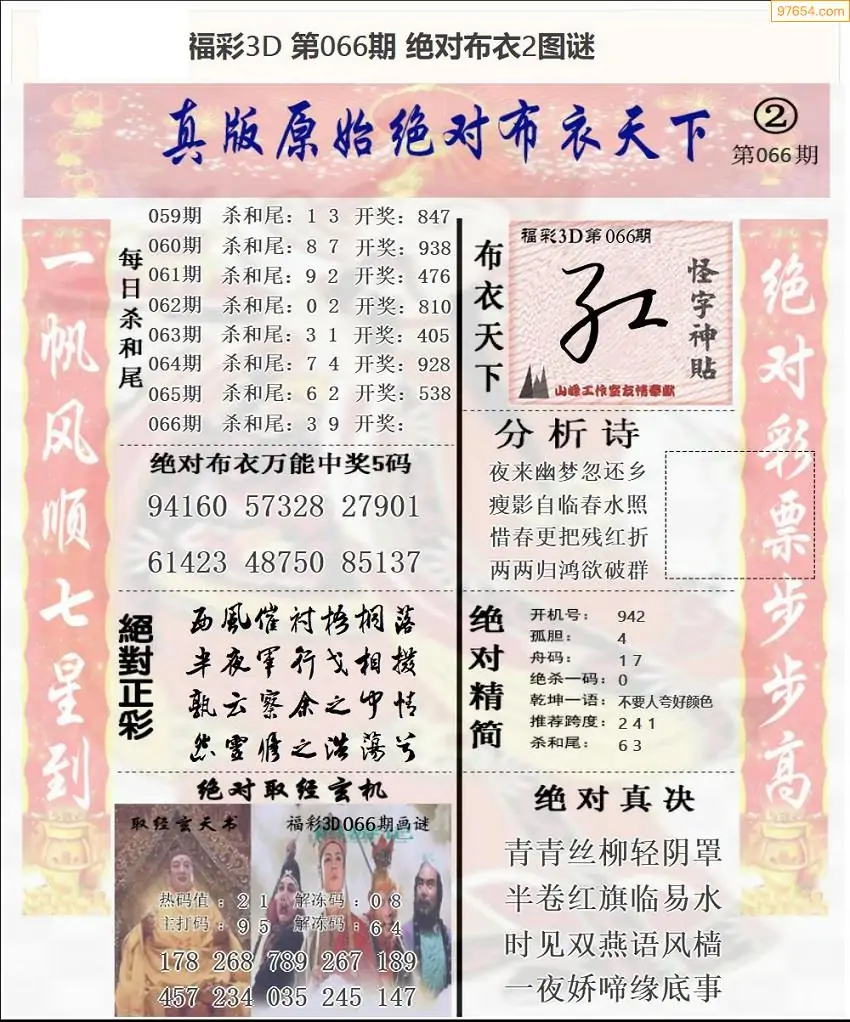 97654.com
福彩3D 第066期 绝对布衣2图谜
真版原始绝对布衣天下
②
第066期
一帆风顺七星到
每日杀和尾
059期 杀和尾：1 3 开奖：847
060期 杀和尾：8 7 开奖：938
061期 杀和尾：9 2 开奖：476
062期 杀和尾：0 2 开奖：810
063期 杀和尾：3 1 开奖：405
064期 杀和尾：7 4 开奖：928
065期 杀和尾：6 2 开奖：538
066期 杀和尾：3 9 开奖：
绝对布衣万能中奖5码
94160 57328 27901
61423 48750 85137
絕對正彩
西風催衬梧桐落
半夜軍行戈相撥
孰云察余之中情
怨靈修之浩蕩兮
绝对取经玄机
取经玄天书
福彩3D066期画谜
热码值：2 1 解冻码：0 8
主打码：9 5 解冻码：6 4
178 268 789 267 189
457 234 035 245 147
布衣天下
福彩3D第066期
红
怪字神貼
山峰工作室友情奉献
分析诗
夜来幽梦忽还乡
瘦影自临春水照
惜春更把残红折
两两归鸿欲破群
绝对精简
开机号：942
孤胆：4
舟码：1 7
绝杀一码：0
乾坤一语：不要人夸好颜色
推荐跨度：2 4 1
杀和尾：6 3
绝对真决
青青丝柳轻阴罩
半卷红旗临易水
时见双燕语风樯
一夜娇啼缘底事
绝对彩票步步高